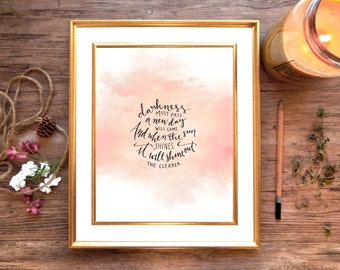 darkness
MUST PASS
a new day
WILL COME
And when the sun
SHINES,
it will shine out
THE CLEARER